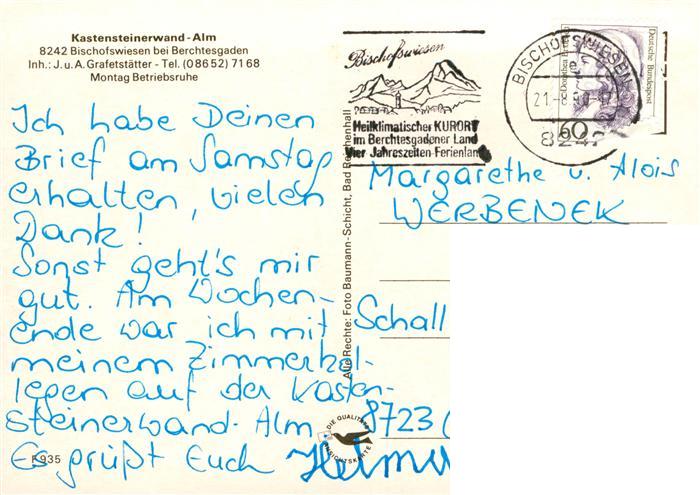 Kastensteinerwand-Alm
8242 Bischofswiesen bei Berchtesgaden
Inh.: J. u. A. Grafetstätter - Tel. (0 86 52) 71 68
Montag Betriebsruhe
Ich habe Deinen
Brief am Samstag
erhalten, vielen
Dank!
Sonst geht's mir
gut. Am Wochen-
ende war ich mit
meinem Zimmerkol-
legen auf der Kasten-
steinerwand-Alm
Es grüßt Euch Helmu
F 935
Alle Rechte: Foto Baumann-Schicht, Bad Reichenhall
DIE QUALITÄTS
ANSICHTSKARTE
Bischofswiesen
Heilklimatischer KURORT
im Berchtesgadener Land
Vier Jahreszeiten-Ferienland
BISCHOFSWIESEN
8242
60
Deutsche Bundespost
Margarethe u. Alois
WERBENEK
Schall
8723 (